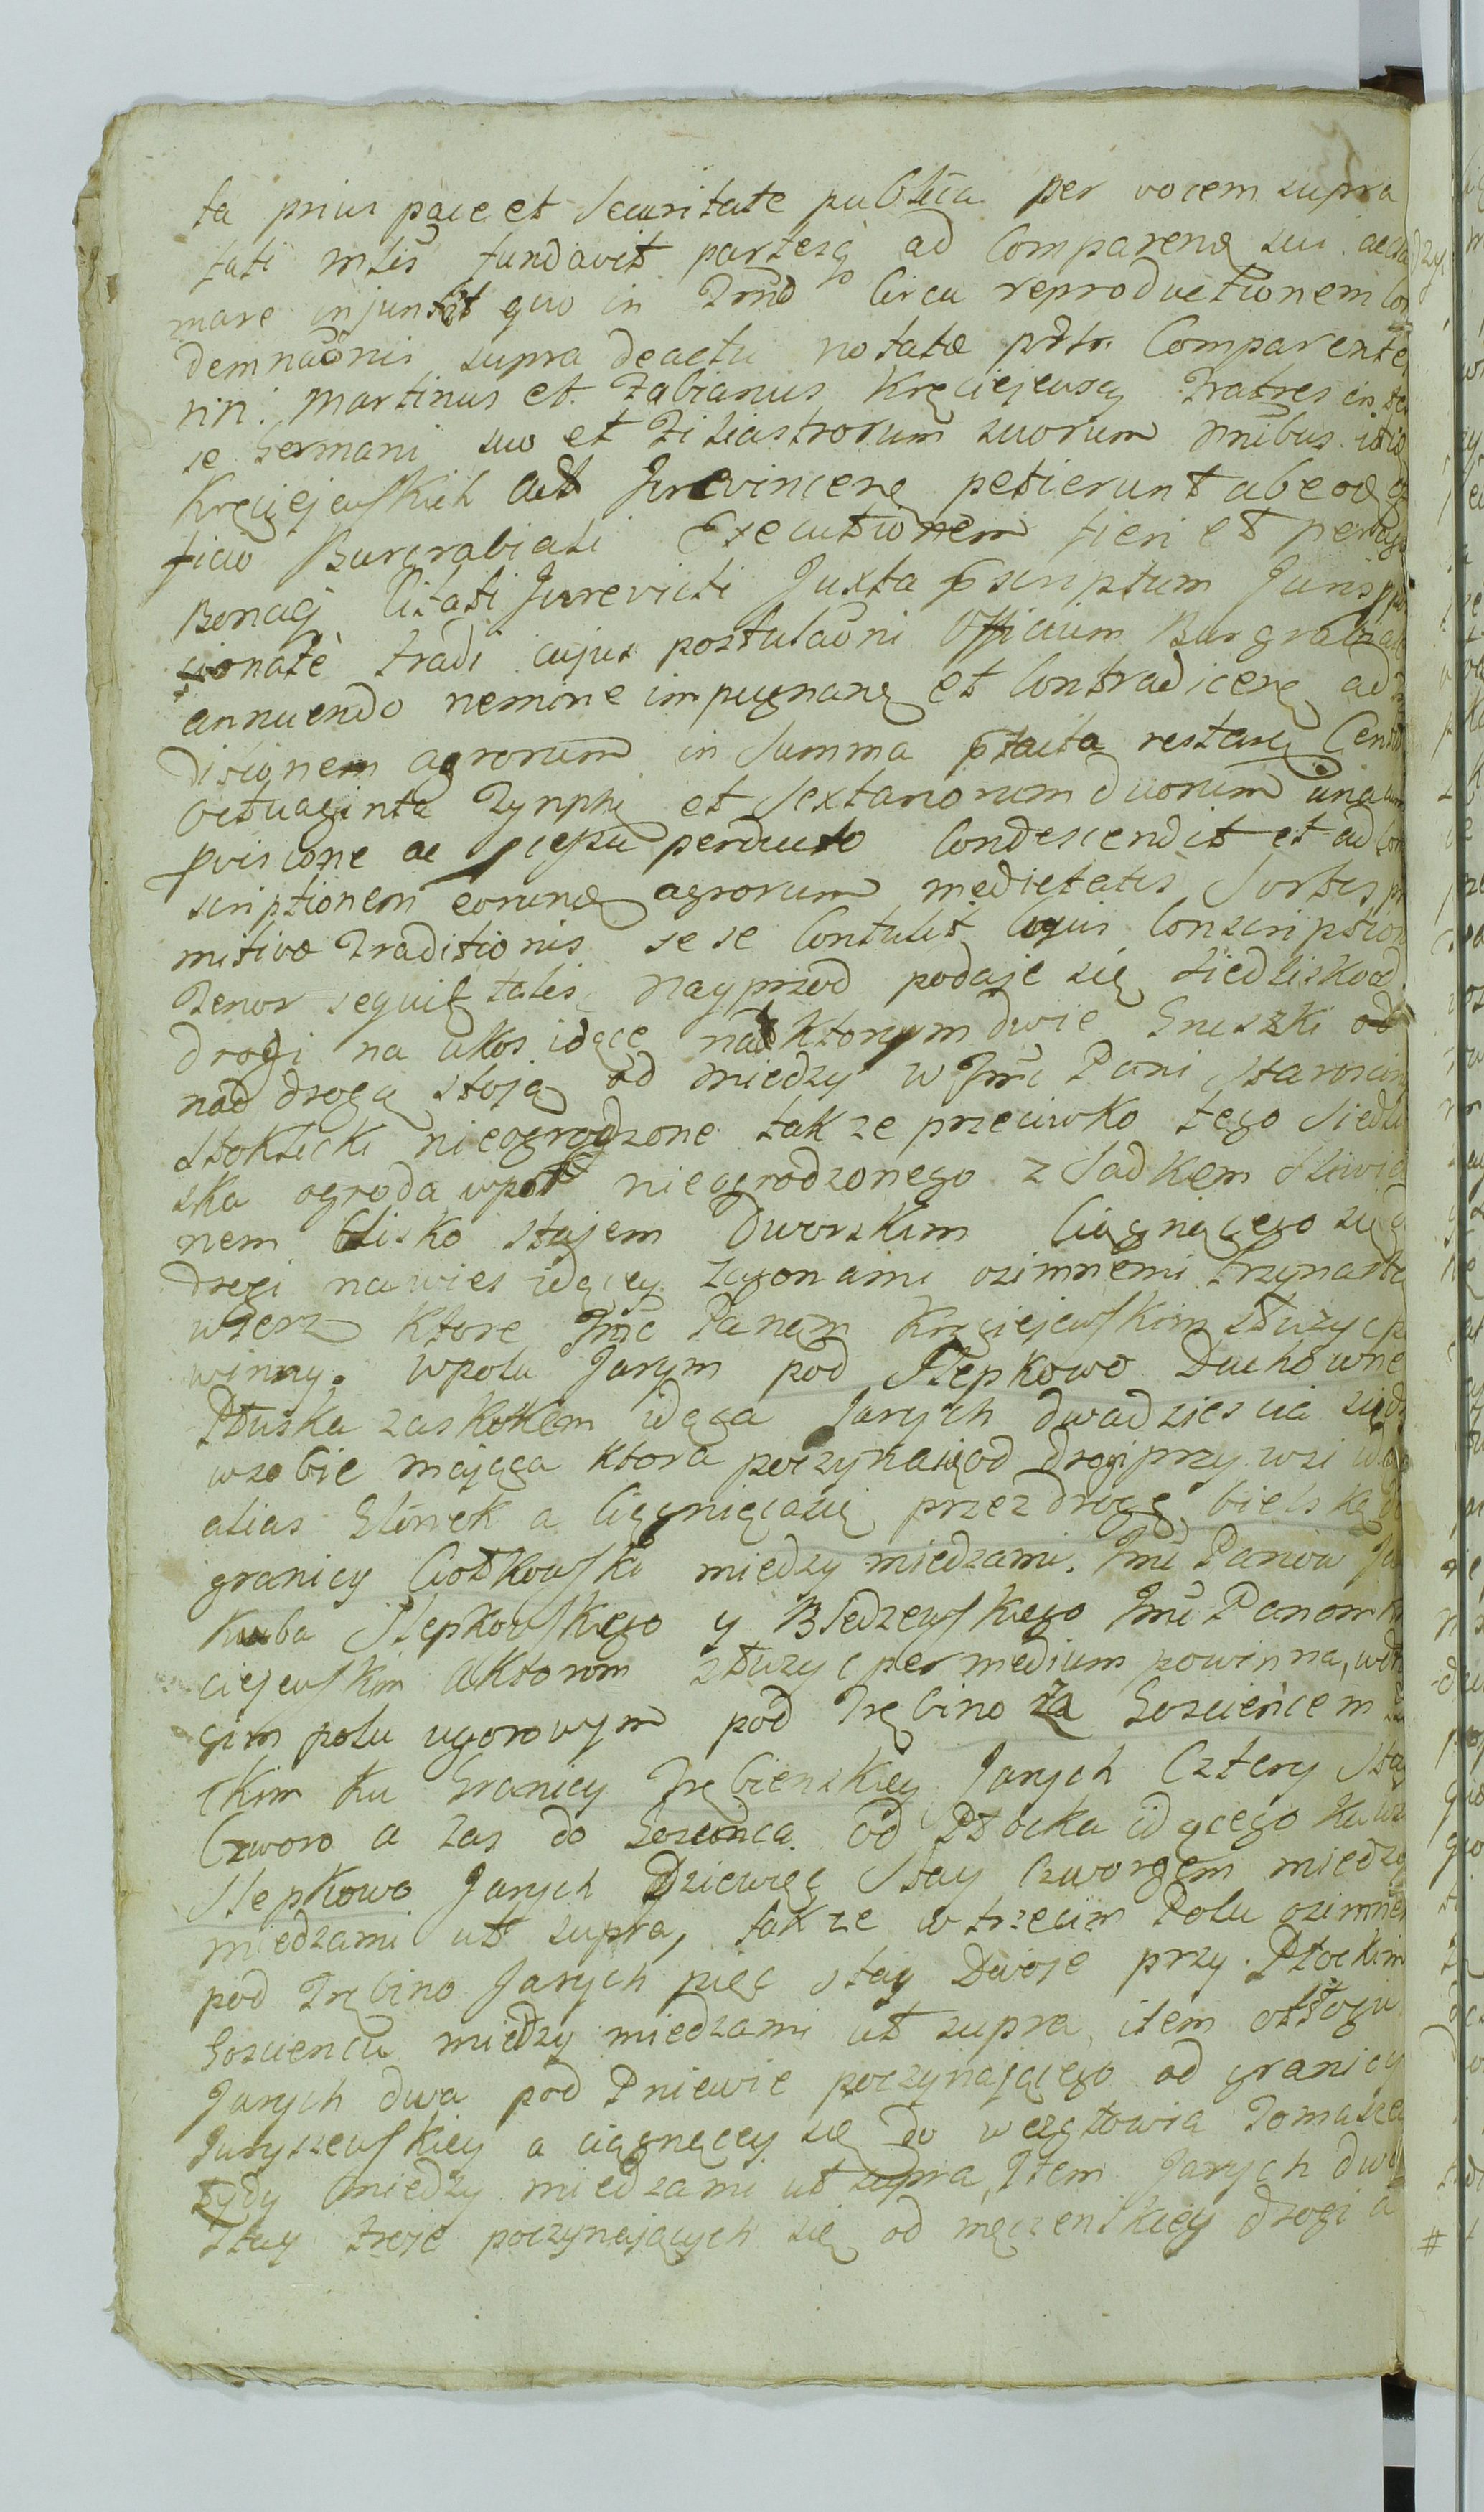 ta prius pace et Securitate publica per vocem supra
tati mlis fundavit partesq ad Comparenẹ sui accla
mare injunxit quo in Trmo Circa reproductionem Con
demnaõnis supra de actu notatæ pstr. Comparentes
nñ. Martinus et Fabianus Kręciejewscy Fratres inter
se Germani suo et Filiastrorum suorum nñibus itio
Kręciejewskich aut Jurevincenẹ petierunt ab eodẹ of
ficio Burgrabiali Executionem fieri et peragi
Bonaq Citati Jurevicti Juxta pscriptum Juris ppor
cionatè tradi cujus postulaõni Officium Burgrabiale
annuendo nemine impugnanẹ et Contradicenẹ ad Tra
ditignem agrorum in Summa ptacita restanẹ Centum
Octuaginta Tynphi et Sextanorum duorum una cum
pvisione ac perducto Condescendit et ad Con
scriptionem eorundẹ agrorum medietatis Sortis pri
mitivæ Traditionis se se Contulit Cujus Conscription
Tenor sequit talis Nayprzod podaje się Siedlisko od
drogi na ukos idące nad ktorym dwie Gruszki od
nad drogą stoją od miedzy W Jmc Pani Staroscin
Stoklicki nieogrodzone takze przeciwko tego Siedli
ska ogroda wpoł nieogrodzonego z Sadkem Sliwia
nem blisko stajem Dworskim Ciągnącego się
drogi na wies idącey zagonami ozimnemi trzynastą
wszerz ktore Jmc Panem Kręciejewskim słuzyc p
winny. Wpolu Jarym pod Slepkowo Duchowne
Płuska zaskokem idąca Jarych dwadziescia siedm
wsobie mająca ktora poczyna się od drogi przy wsi idą
alias Glinek a Ciągnięcasię przez drogę bielską do
granicy Ciotkowski między miedzami. Jmc Panow Ja
kuba Slepkowskiego y Bledzewskiego Jmc Panom Krę
ciejewskim aktorom słuzyc per medium powinna, wdru
gim polu ugorowym pod Trębino za Goscieńcem
ckim ku Granicy Trębienskiey Jarych Cztery Stay
Czworo a zas do Goscinca od Płocka idącego ku wsi
Slepkowo Jarych Dziewięc Stay Czworgem między
miedzami ut supra, takze w trzecim Polu ozimnem
pod Trębino Jarych pięc stay Dwoje przy Płockim
Goscieńcu między miedzami ut supra, item otłogu
Jarych dwa pod Pniewie poczynającego od granicy
Juryszewskiey a ciągnącey się do wezgłowia Tomasza
Zydy między miedzami ut supra, Item Jarych dwa
Stay troje poczynających się od męczenskiey drogi a